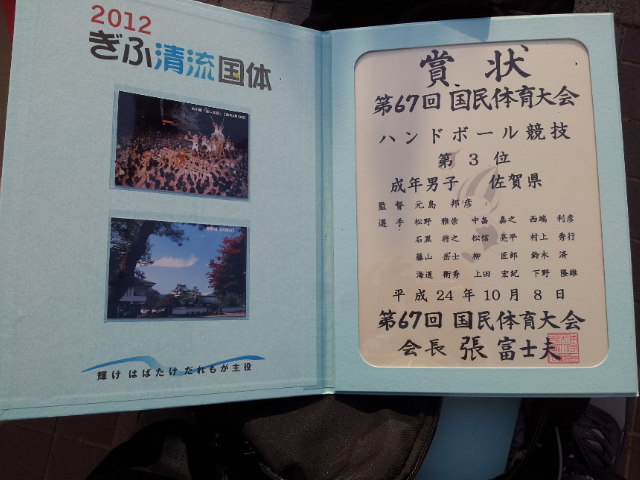 2012
ぎふ清流国体
輝け はばたけ だれもが主役
賞状
第67回 国民体育大会
ハンドボール競技
第 3 位
成年男子 佐賀県
監督 元島 邦彦
選手 松野 雅崇 中畠 嘉之 西端 利彦
石黒 将之 松信 亮平 村上 秀行
藤山 岳士 柳 匠郎 鈴木 済
海道 衛秀 上田 宏紀 下野 隆雄
平成24年10月8日
第67回 国民体育大会
会長 張 富士夫